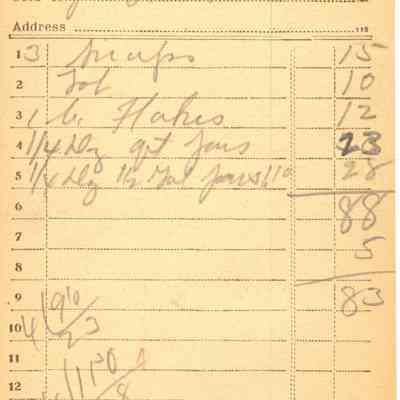 Address 115
1 3 snaps 15
2 Tob 10
3 1 C. Flakes 12
4 1/4 Dz qt Jars 23
5 1/4 Dz 1/2 Gal Jars 1.10 28
6 88
7 5
8
9 83
10 4 90 23
11
12 1.10 28